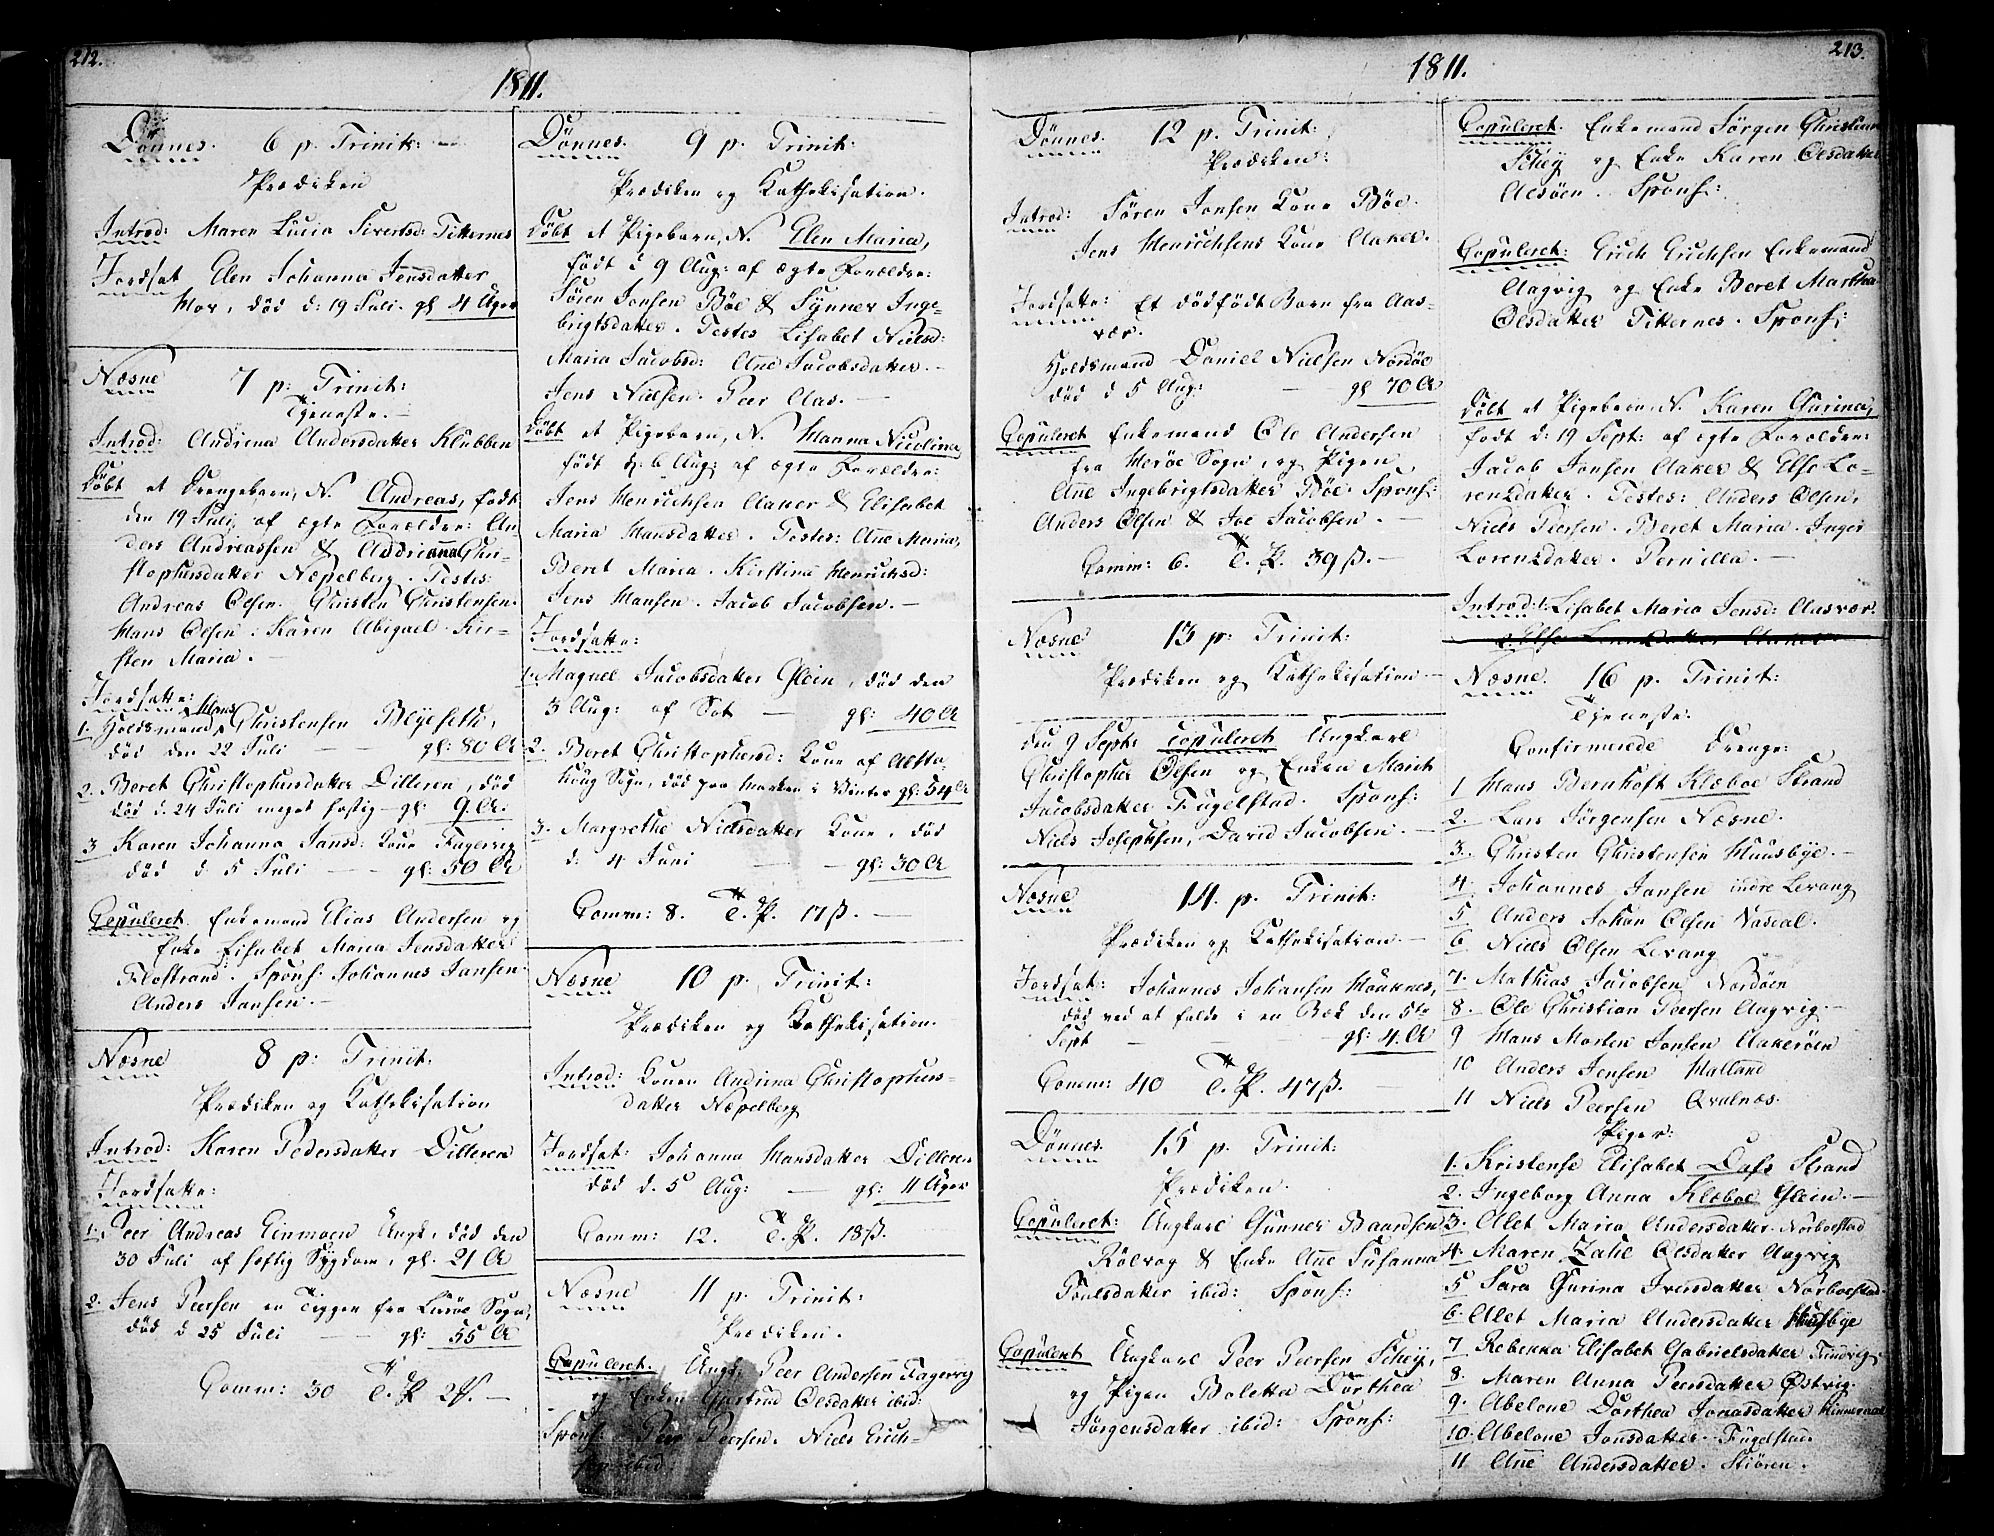 212.
1811.
Dönnes. 6 p. Trinit:
Prædiken
Introd: Maren Lucia Sivertsd: Titternes
Jordsat Elen Johanna Jensdatter
Mor, død d: 19 Juli. gl 4 Uger
Næsne 7 p: Trinit:
Tjeneste.
Introd: Andrena Andersdatter Klubben
Døbt et Drengebarn, N. Andreas, født
den 19 Juli, af ægte Forældre: An-
ders Andreassen & Andrianna Chri-
stophersdatter Næpelberg. Testes:
Andreas Olsen. Christen Christensen.
Hans Olsen: Karen Abigael. Kir-
sten Maria.
Jordsatte:
1. Holdsmand Hans Christensen Blyeseth,
død den 22 Juli gl: 80 Ar
2. Beret Christophersdatter Dilleren, død
død d. 24 Juli meget hastig gl: 9 Ar.
3 Karen Johanna Jansd: Kone Fagervig
død d 5 Juli gl: 50 Ar
Copuleret. Enkemand Elias Andersen og
Enke Lisabet Maria Jensdatter
Flostrand. Spons: Johannes Jansen.
Anders Jansen.
Næsne 8 p: Trinit.
Prædiken og Kathekisation
Introd: Karen Pedersdatter Dilleren
Jordsatte:
1. Peer Andreas Einmoen Ungk, død den
30 Juli af hæftig Sygdom, gl. 21 Ar
2. Jens Peersen en Tigger fra Luröe Sogn,
død d 25 Juli gl: 55 Ar
Comm: 30 T. P 2
Dönnes. 9 p. Trinit:
Prædiken og Kathekisation.
Døbt et Pigebarn, N. Elen Maria,
født d 9 Aug: af ægte Forældre:
Sören Jonsen Böe & Synner Inge-
brigtsdatter. Testes Lisabet Nielsd:
Maria Jacobsd: Ane Jacobsdatter.
Jens Nielsen. Peer Aas.
Døbt et Pigebarn, N. Hanna Nicolina,
født d: 6 Aug: af ægte Forældre:
Jens Henrichsen Aaker & Elisabet
Maria Hansdatter. Testes: Ane Maria,
Beret Maria. Kirstina Henrichsd:
Jens Hansen. Jacob Jacobsen.
Jordsatte:
1. Magnel Jacobsdatter Glein, død den
3 Aug: af Sot gl: 40 Ar
2. Beret Christophersd: Kone af Alsta-
houg Sogn, død paa Marken i Vinter gl: 54 Ar
3. Margrethe Nielsdatter Kone, død
d: 4 Juni gl: 30 Ar
Comm: 8. T. P. 17 ß.
Næsne 10 p. Trinit:
Prædiken og Kathekisation.
Introd: Konen Andrina Christophers-
datter Næpelberg
Jordsat: Johanna Hansdatter Dilleren
død d. 5 Aug: gl: 11 Uger
Comm: 12. T. P. 18 ß.
Næsne 11 p. Trinit:
Prædiken.
Copuleret. Ungk: Peer Andersen Fagervig
og Enken Gjertrud Olsdatter ibid:
Spons: Peer Peersen. Niels Erich-
sen ibid.
213.
1811.
Dönnes. 12 p. Trinit:
Prædiken:
Introd: Sören Jonsen Kone Böe.
Jens Henrichsens Kone Aaker.
Jordsatte: Et dødfødt Barn fra Aas-
vær.
Holdsmand Daniel Nielsen Nordöe
død d 5 Aug: gl 70 Ar
Copuleret Enkemand Ole Andersen
fra Heröe Sogn, og Pigen
Ane Ingebrigtsdatter Böe. Spons:
Anders Olsen & Joe Jacobsen.
Comm: 6. T. P. 39 ß.
Næsne 13 p: Trinit:
Prædiken og Kathekisation
Den 9 Sept: copuleret Ungkarl
Christopher Olsen og Enken Marit
Jacobsdatter Fugelstad. Spons:
Niels Josephsen, David Jacobsen.
Næsne 14. p. Trinit:
Prædiken og Kathekisation.
Jordsat: Johannes Johansen Houknes,
død ved at falde i en Bæk den 5te
Sept gl: 4 Ar
Comm: 40 T. P. 47 ß.
Dönnes. 15 p. Trinit:
Prædiken.
Copuleret: Ungkarl Gunner Baardsen
Rölvog & Enke Ane Susanna
Poulsdatter ibid: Spons:
Copuleret Ungkarl Peer Peersen Schey,
og Pigen Boletta Dorthea
Jörgensdatter ibid: Spons:
Copuleret. Enkemand Jörgen Christian
Schey og Enke Karen Olsdatter
Alsöen. Spons:
Copuleret: Erich Erichsen Enkemand
Aagvig og Enke Beret Martha
Olsdatter Titternes. Spons:
Døbt et Pigebarn, N. Karen Gurina,
født d: 19 Sept: af ægte Forældre:
Jacob Jonsen Aaker & Else Lo-
rentzdatter. Testes: Anders Olsen.
Niels Peersen. Beret Maria. Inger
Lorentzdatter. Pernilla.
Introd: 1. Lisabet Maria Jensd: Aasvær.
2. Else Lorentzdatter Aaker.
Næsne. 16 p. Trinit:
Tjeneste.
Confirmerede Drenge:
1 Hans Bernhoft Klæboe Strand
2. Lars Jörgensen Næsne.
3. Christen Christensen Huusbye.
4. Johannes Jansen indre Levang
5 Anders Johan Olsen Vasdal.
6. Niels Olsen Levang
7. Mathias Jacobsen Nordöen
8. Ole Christian Peersen Aagvig.
9 Hans Morten Jonsen Aakeröen
10 Anders Jensen Halland
11 Niels Peersen Qvalnæs.
Piger:
1. Kristense Elisabet Dass Strand
2. Ingeborg Anna Klæboe Glein.
3. Alet Maria Andersdatter. Norboestad
4. Maren Zahl Olsdatter Aagvig
5 Sara Gurina Iversdatter Norboestad
6. Alet Maria Andersdatter Huusbye
7 Rebekka Elisabet Gabrielsdatter Sundvig
8. Maren Anna Peersdatter Østvig.
9. Abelone Dorthea Jonasdatter Hinneraas
10. Abelone Jonsdatter. Fugelstad.
11 Ane Andersdatter. Skiören.